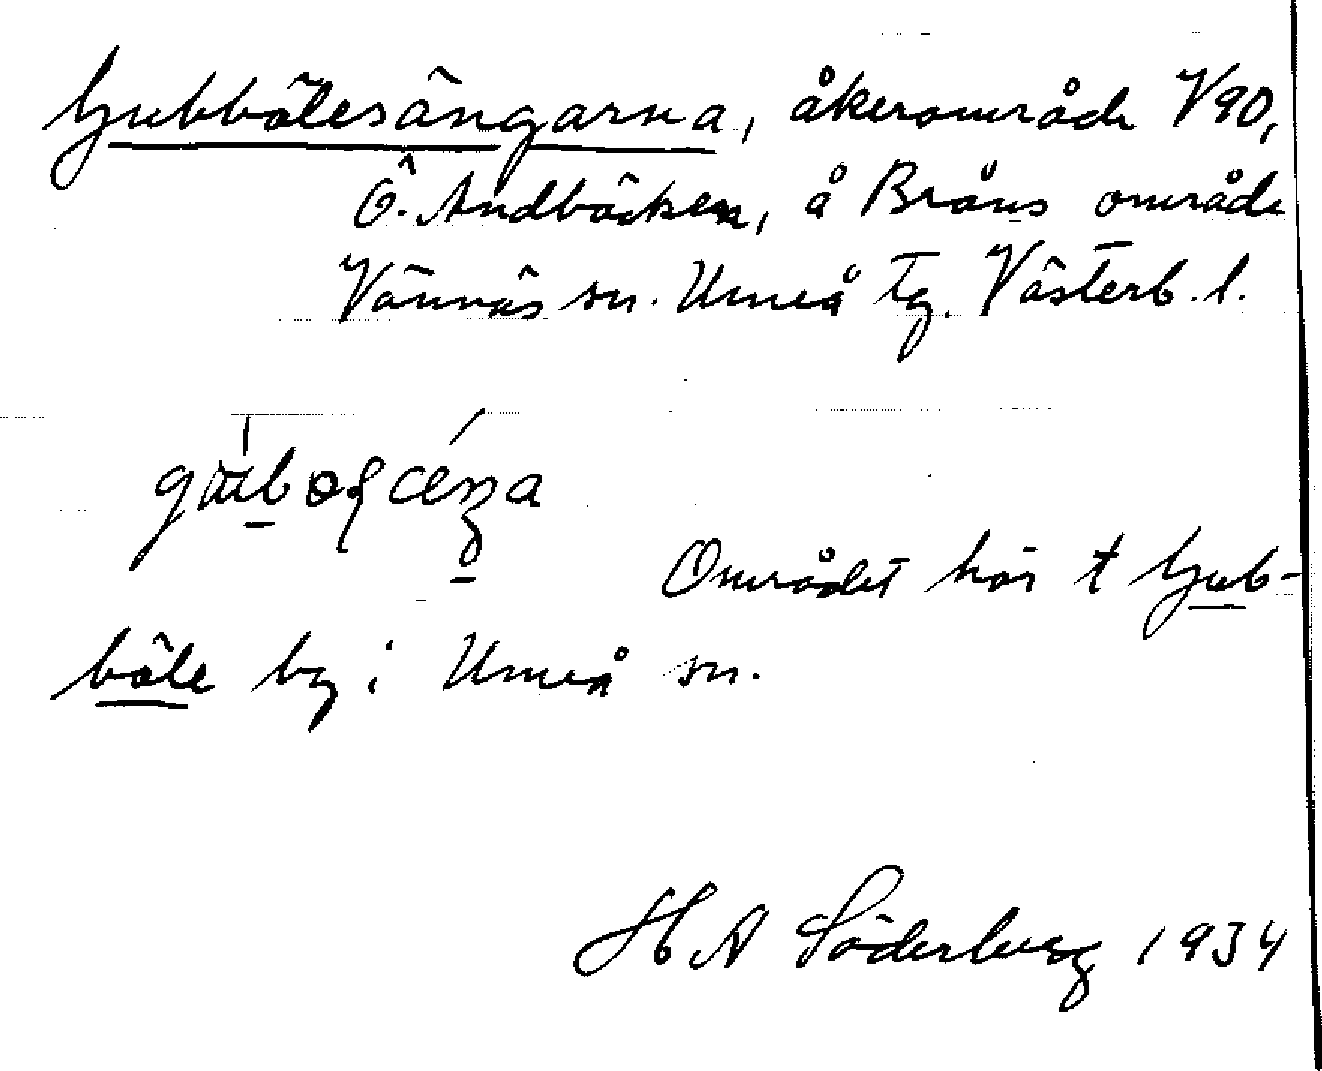 Gubbölesängarna, åkerområde V90,
Ö. Andbäcken, å Bråns område
Vännäs sn. Umeå tg. Västerb. l.
Området hör t Gub-
böle by i Umeå sn.
H A Söderberg 1934